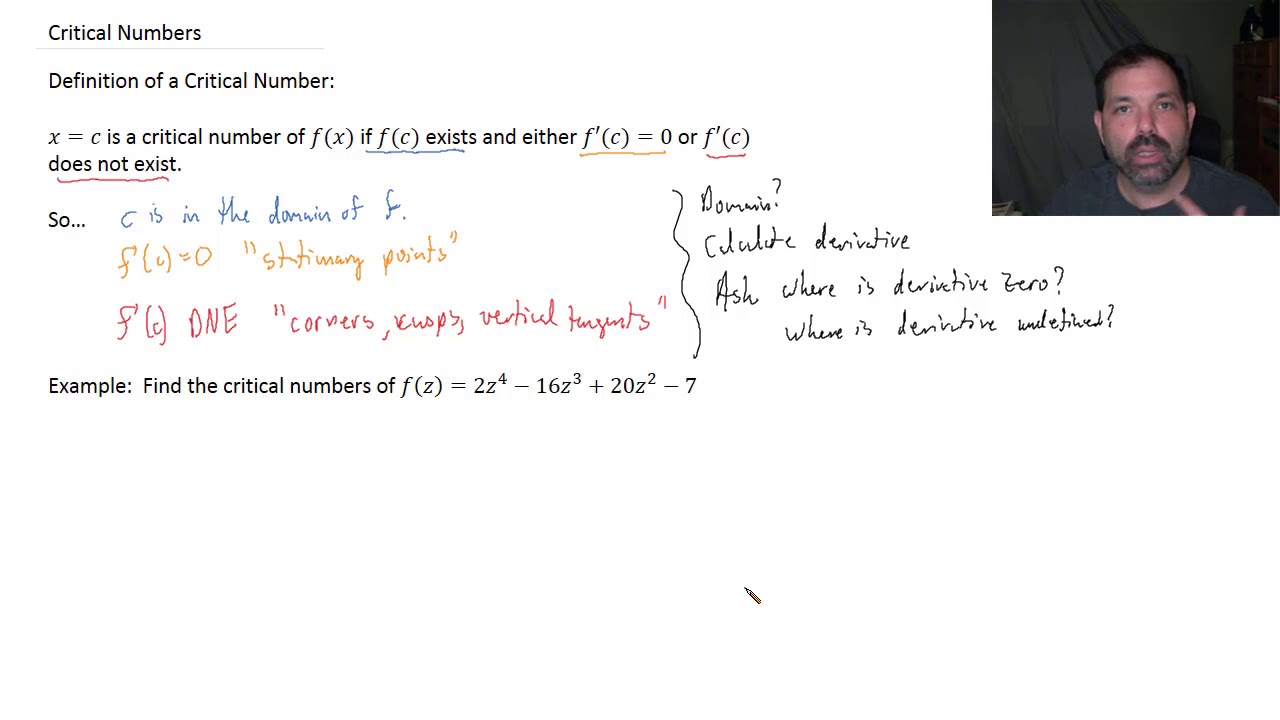 Critical Numbers
Definition of a Critical Number:
x = c is a critical number of f(x) if f(c) exists and either f′(c) = 0 or f′(c)
does not exist.
So... c is in the domain of f.
f'(c)=0 "stationary points"
f'(c) DNE "corners, cusps, vertical tangents"
Domain?
Calculate derivative
Ask where is derivative zero?
where is derivative undefined?
Example: Find the critical numbers of f(z) = 2z⁴ − 16z³ + 20z² − 7